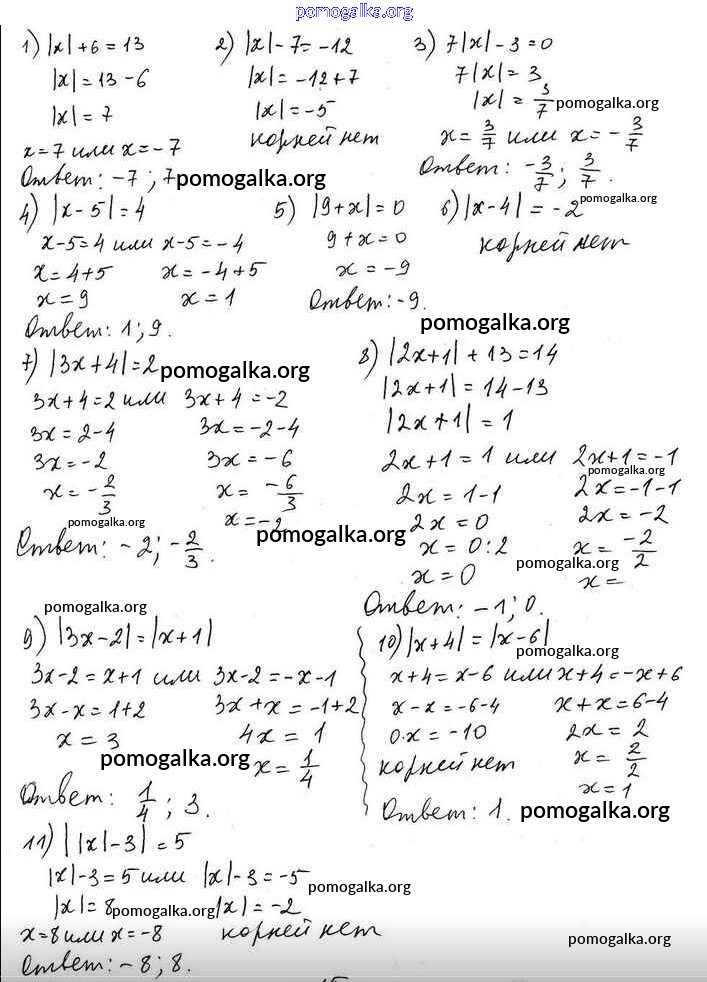 pomogalka.org
1) |x| + 6 = 13
|x| = 13 - 6
|x| = 7
x = 7 или x = -7
Ответ: -7; 7 pomogalka.org
2) |x| - 7 = -12
|x| = -12 + 7
|x| = -5
корней нет
3) 7|x| - 3 = 0
7|x| = 3
|x| = 3/7 pomogalka.org
x = 3/7 или x = -3/7
Ответ: -3/7; 3/7.
4) |x - 5| = 4
x - 5 = 4 или x - 5 = -4
x = 4 + 5 x = -4 + 5
x = 9 x = 1
Ответ: 1; 9.
5) |9 + x| = 0
9 + x = 0
x = -9
Ответ: -9.
6) |x - 4| = -2 pomogalka.org
корней нет
pomogalka.org
7) |3x + 4| = 2 pomogalka.org
3x + 4 = 2 или 3x + 4 = -2
3x = 2 - 4 3x = -2 - 4
3x = -2 3x = -6
x = -2/3 x = -6/3
pomogalka.org x = -2 pomogalka.org
Ответ: -2; -2/3.
8) |2x + 1| + 13 = 14
|2x + 1| = 14 - 13
|2x + 1| = 1
2x + 1 = 1 или 2x + 1 = -1
pomogalka.org
2x = 1 - 1 2x = -1 - 1
2x = 0 2x = -2
x = 0 : 2 x = -2/2
pomogalka.org
x = 0 x =
Ответ: -1; 0.
pomogalka.org
9) |3x - 2| = |x + 1|
3x - 2 = x + 1 или 3x - 2 = -x - 1
3x - x = 1 + 2 3x + x = -1 + 2
x = 3 4x = 1
pomogalka.org x = 1/4
Ответ: 1/4; 3.
10) |x + 4| = |x - 6|
pomogalka.org
x + 4 = x - 6 или x + 4 = -x + 6
x - x = -6 - 4 x + x = 6 - 4
0·x = -10 2x = 2
корней нет x = 2/2
x = 1
Ответ: 1. pomogalka.org
11) ||x| - 3| = 5
|x| - 3 = 5 или |x| - 3 = -5
pomogalka.org
|x| = 8 pomogalka.org |x| = -2
x = 8 или x = -8 корней нет
pomogalka.org
Ответ: -8; 8.